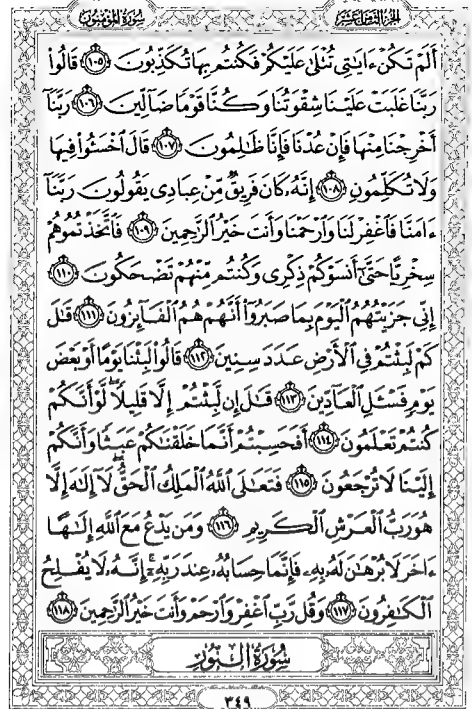 الجزء الثامن عشر
سورة المؤمنون
أَلَمْ تَكُنْ ءَايَٰتِى تُتْلَىٰ عَلَيْكُمْ فَكُنتُم بِهَا تُكَذِّبُونَ ١٠٥ قَالُوا۟
رَبَّنَا غَلَبَتْ عَلَيْنَا شِقْوَتُنَا وَكُنَّا قَوْمًا ضَآلِّينَ ١٠٦ رَبَّنَآ
أَخْرِجْنَا مِنْهَا فَإِنْ عُدْنَا فَإِنَّا ظَٰلِمُونَ ١٠٧ قَالَ ٱخْسَـُٔوا۟ فِيهَا
وَلَا تُكَلِّمُونِ ١٠٨ إِنَّهُۥ كَانَ فَرِيقٌ مِّنْ عِبَادِى يَقُولُونَ رَبَّنَآ
ءَامَنَّا فَٱغْفِرْ لَنَا وَٱرْحَمْنَا وَأَنتَ خَيْرُ ٱلرَّٰحِمِينَ ١٠٩ فَٱتَّخَذْتُمُوهُمْ
سِخْرِيًّا حَتَّىٰٓ أَنسَوْكُمْ ذِكْرِى وَكُنتُم مِّنْهُمْ تَضْحَكُونَ ١١٠
إِنِّى جَزَيْتُهُمُ ٱلْيَوْمَ بِمَا صَبَرُوٓا۟ أَنَّهُمْ هُمُ ٱلْفَآئِزُونَ ١١١ قَٰلَ
كَمْ لَبِثْتُمْ فِى ٱلْأَرْضِ عَدَدَ سِنِينَ ١١٢ قَالُوا۟ لَبِثْنَا يَوْمًا أَوْ بَعْضَ
يَوْمٍ فَسْـَٔلِ ٱلْعَآدِّينَ ١١٣ قَٰلَ إِن لَّبِثْتُمْ إِلَّا قَلِيلًا لَّوْ أَنَّكُمْ
كُنتُمْ تَعْلَمُونَ ١١٤ أَفَحَسِبْتُمْ أَنَّمَا خَلَقْنَٰكُمْ عَبَثًا وَأَنَّكُمْ
إِلَيْنَا لَا تُرْجَعُونَ ١١٥ فَتَعَٰلَى ٱللَّهُ ٱلْمَلِكُ ٱلْحَقُّ لَآ إِلَٰهَ إِلَّا
هُوَ رَبُّ ٱلْعَرْشِ ٱلْكَرِيمِ ١١٦ وَمَن يَدْعُ مَعَ ٱللَّهِ إِلَٰهًا
ءَاخَرَ لَا بُرْهَٰنَ لَهُۥ بِهِۦ فَإِنَّمَا حِسَابُهُۥ عِندَ رَبِّهِۦٓ ۚ إِنَّهُۥ لَا يُفْلِحُ
ٱلْكَٰفِرُونَ ١١٧ وَقُل رَّبِّ ٱغْفِرْ وَٱرْحَمْ وَأَنتَ خَيْرُ ٱلرَّٰحِمِينَ ١١٨
سُورَةُ النُّورِ
٣٤٩